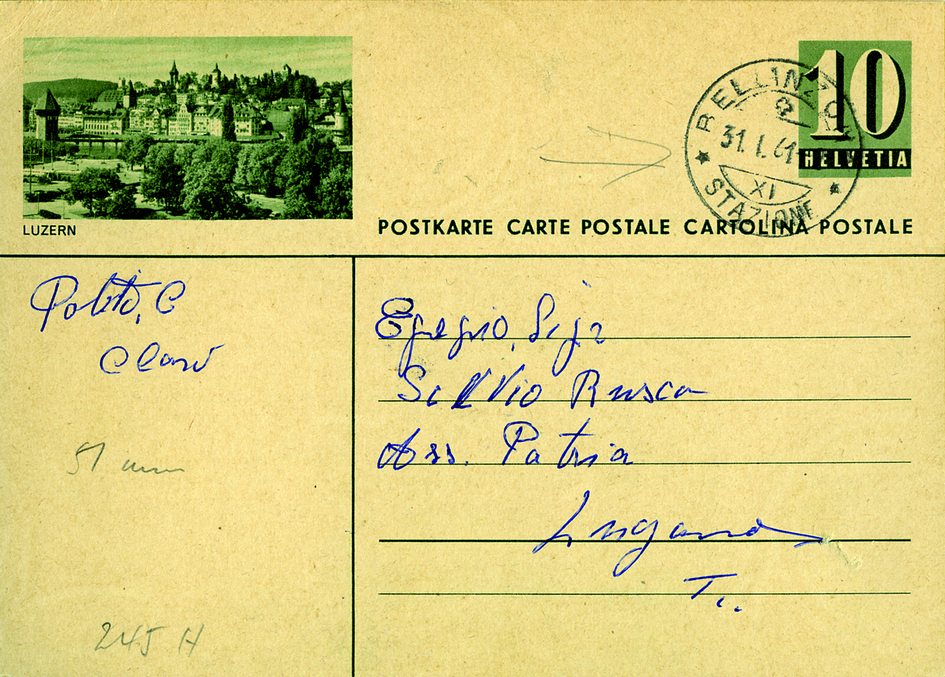 10
HELVETIA
BELLINZO
2
31.I.61
XI
STAZIONE
LUZERN
POSTKARTE CARTE POSTALE CARTOLINA POSTALE
C
Claro
51 mm
245 H
Egregio, Sigr
Silvio Rusca
Ass. Patria
Lugano
Ti.